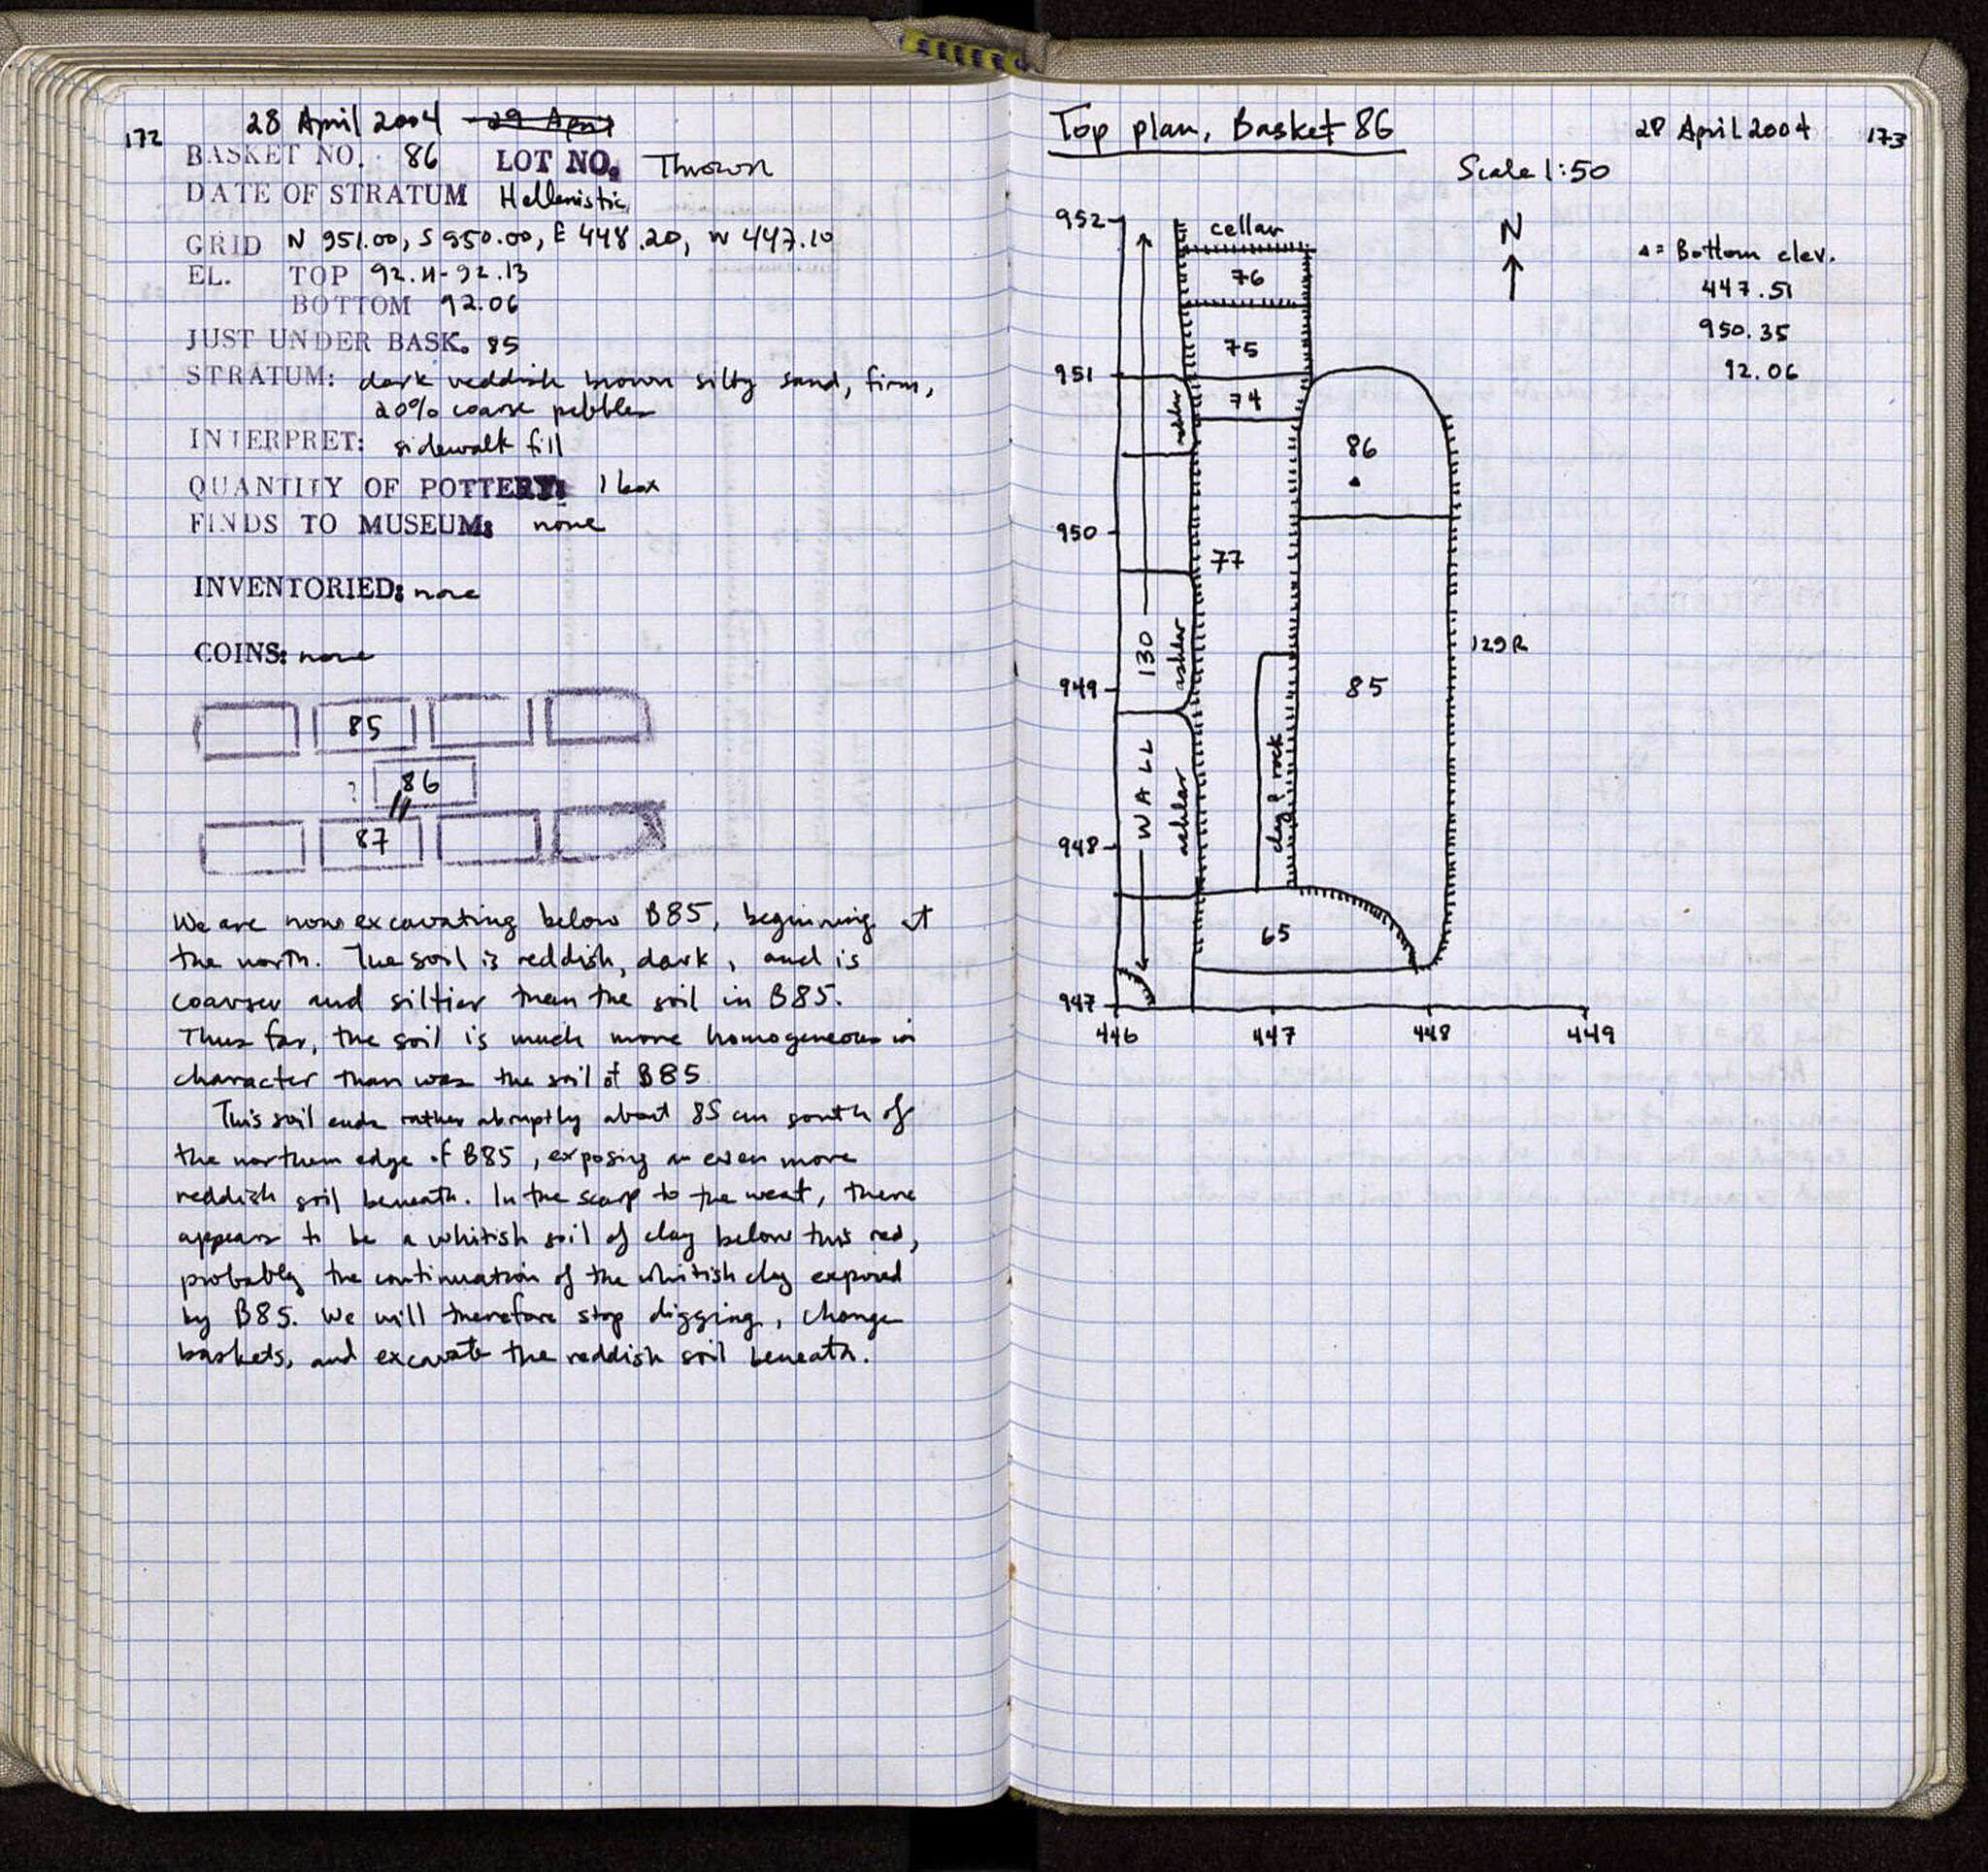 172
28 April 2004 29 April
BASKET NO. 86 LOT NO. Thrown
DATE OF STRATUM Hellenistic
GRID N 951.00, S 950.00, E 448.20, W 447.10
EL. TOP 92.11-92.13
BOTTOM 92.06
JUST UNDER BASK. 85
STRATUM: dark reddish brown silty sand, firm,
20% coarse pebbles
INTERPRET: sidewalk fill
QUANTITY OF POTTERY: 1 box
FINDS TO MUSEUM: none
INVENTORIED: none
COINS: none
85
? 86
87
We are now excavating below B85, beginning at
the north. The soil is reddish, dark, and is
coarser and siltier than the soil in B85.
Thus far, the soil is much more homogeneous in
character than was the soil of B85.
This soil ends rather abruptly about 85 cm south of
the northern edge of B85, exposing an even more
reddish soil beneath. In the scarp to the west, there
appears to be a whitish soil of clay below this red,
probably the continuation of the whitish clay exposed
by B85. We will therefore stop digging, change
baskets, and excavate the reddish soil beneath.
Top plan, Basket 86
28 April 2004
173
Scale 1:50
N
▵ = Bottom elev.
447.51
950.35
92.06
952
cellar
76
75
951
74
ashlar
86
950
77
130
ashlar
129R
949
85
WALL
ashlar
clay? rock
948
65
947
446 447 448 449